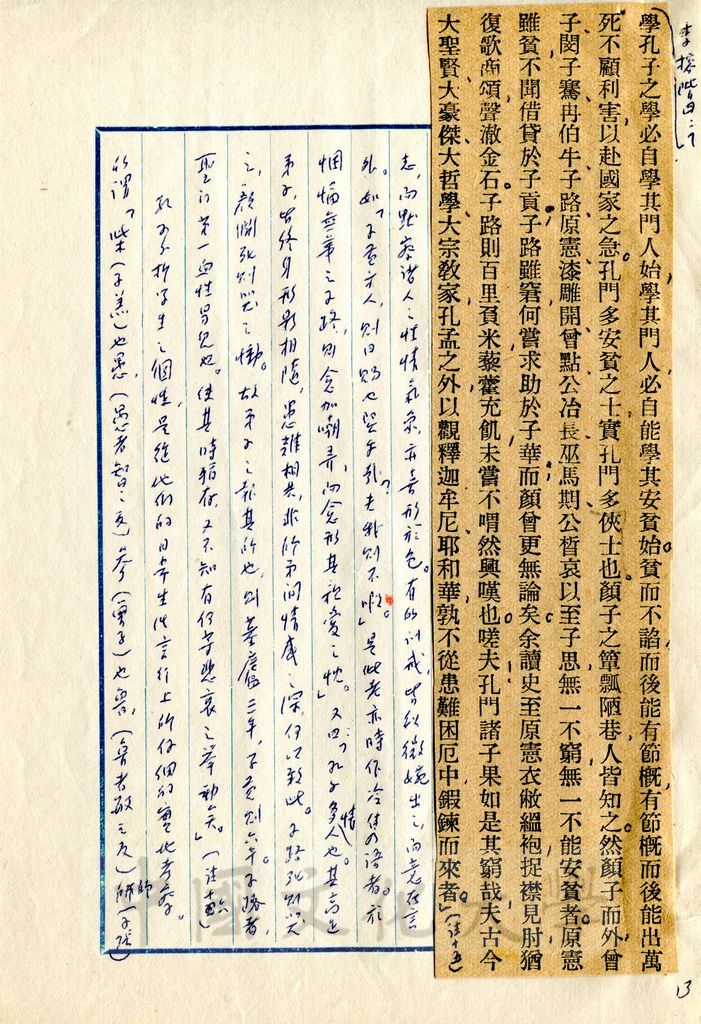 李榕階曰：「
學孔子之學必自學其門人始學其門人必自能學其安貧始貧而不諂而後能有節概有節概而後能出萬
死不顧利害以赴國家之急孔門多安貧之士實孔門多俠士也顏子之簞瓢陋巷人皆知之然顏子而外曾
子閔子騫冉伯牛子路原憲漆雕開曾點公冶長巫馬期公皙哀以至子思無一不窮無一不能安貧者原憲
雖貧不聞借貸於子貢子路雖窘何嘗求助於子華而顏曾更無論矣余讀史至原憲衣敝縕袍捉襟見肘猶
復歌商頌聲澈金石子路則百里負米藜藿充飢未嘗不喟然興嘆也嗟夫孔門諸子果如是其窮哉夫古今
大聖賢大豪傑大哲學大宗教家孔孟之外以觀釋迦牟尼耶和華孰不從患難困厄中鍛鍊而來者」（註十五）
志，而默察諸人之性情氣象，亦喜形於色。有的訓戒，皆以微婉出之，而意在言
外。如「子貢方人，則曰賜也賢乎哉？夫我則不暇」。是此老亦時作冷雋的語者。於
悃愊無華之子路，則念加嘲弄，而念形其親愛之忱。」又曰：「孔子多情人也。其高足
弟子，皆終身形影相隨，患難相共，非師弟間情感之深，何以致此。子路死則哭
之，顏淵死則哭之慟。故弟子之報其師也，則墓廬三年，子貢則六年不務者，
聖門第一血性男兒也。使其時猶存，又不知有何等悲哀之舉動矣」。（註十六）
孔子分析學生之個性，是從他們的日常生活言行上所作個的實地考察。
所謂「柴（子羔）也愚，（愚者智之反）參（曾子）也魯，（魯者敏之反）師（子張）
中國文化大學
13